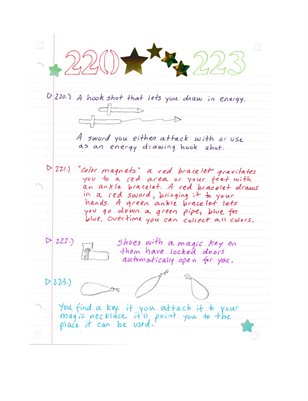 220 223
▷ 220.) A hookshot that lets you draw in energy.
A sword you either attack with or use
as an energy drawing hook shot.
▷ 221.) "Color magnets" a red bracelet gravitates
you to a red area or your feet with
an ankle bracelet. A red bracelet draws
in a red sword, bringing it to your
hands. A green ankle bracelet lets
you go down a green pipe, blue for
blue. Overtime you can collect all colors.
▷ 222.) Shoes with a magic key on
them have locked doors
automatically open for you.
▷ 223.)
You find a key. if you attach it to your
magic necklace it'll point you to the
place it can be used.